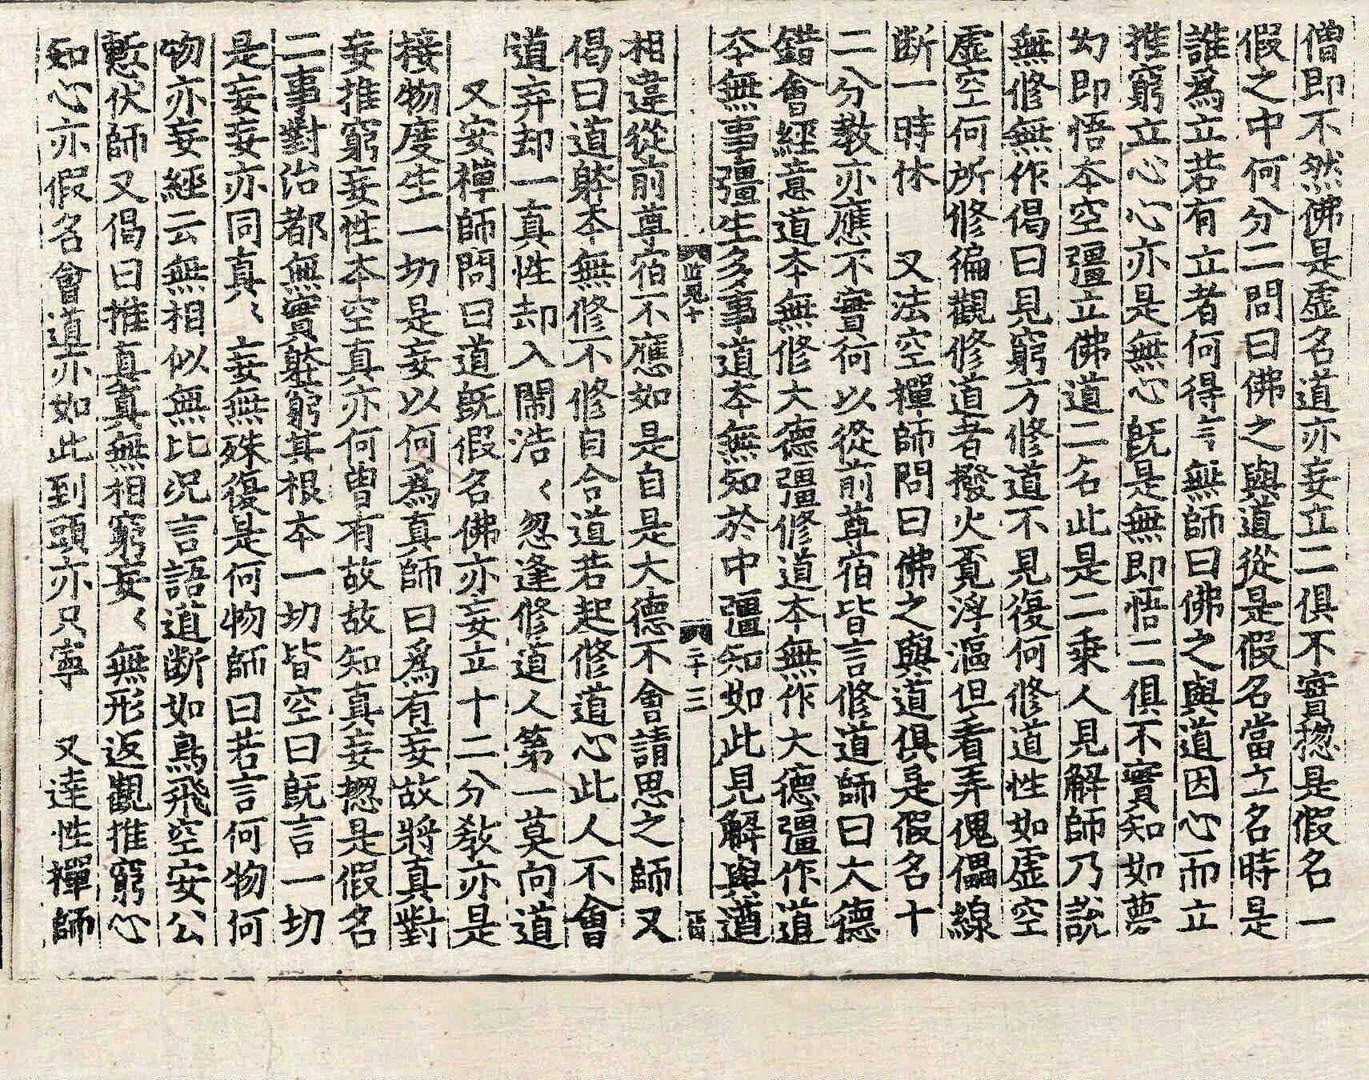 僧即不然佛是虛名道亦妄立二俱不實揔是假名一
假之中何分二問曰佛之與道從是假名當立名時是
誰爲立若有立者何得言無師曰佛之與道因心而立
推窮立心心亦是無心旣是無即悟二俱不實知如夢
幻即悟本空彊立佛道二名此是二乘人見解師乃說
無修無作偈曰見窮方修道不見復何修道性如虛空
虛空何所修徧觀修道者撥火覓浮漚但看弄傀儡線
断一時休　又法空禪師問曰佛之與道俱是假名十
二分教亦應不實何以從前尊宿皆言修道師曰大德
錯會經意道本無修大德彊修道本無作大德彊作道
本無事彊生多事道本無知於中彊知如此見解與道
二十三
相違從前尊宿不應如是自是大德不會請思之師又
偈曰道躰本無修不修自合道若起修道心此人不會
道弃却一真性却入鬧浩〻忽逢修道人第一莫向道
又安禪師問曰道旣假名佛亦妄立十二分教亦是
接物度生一切是妄以何爲真師曰爲有妄故將真對
妄推窮妄性本空真亦何曾有故故知真妄揔是假名
二事對治都無實躰窮其根本一切皆空曰旣言一切
是妄妄亦同真〻妄無殊復是何物師曰若言何物何
物亦妄經云無相似無比况言語道断如鳥飛空安公
慙伏師又偈曰推真真無相窮妄〻無形返觀推窮心
知心亦假名會道亦如此到頭亦只寧　又達性禪師